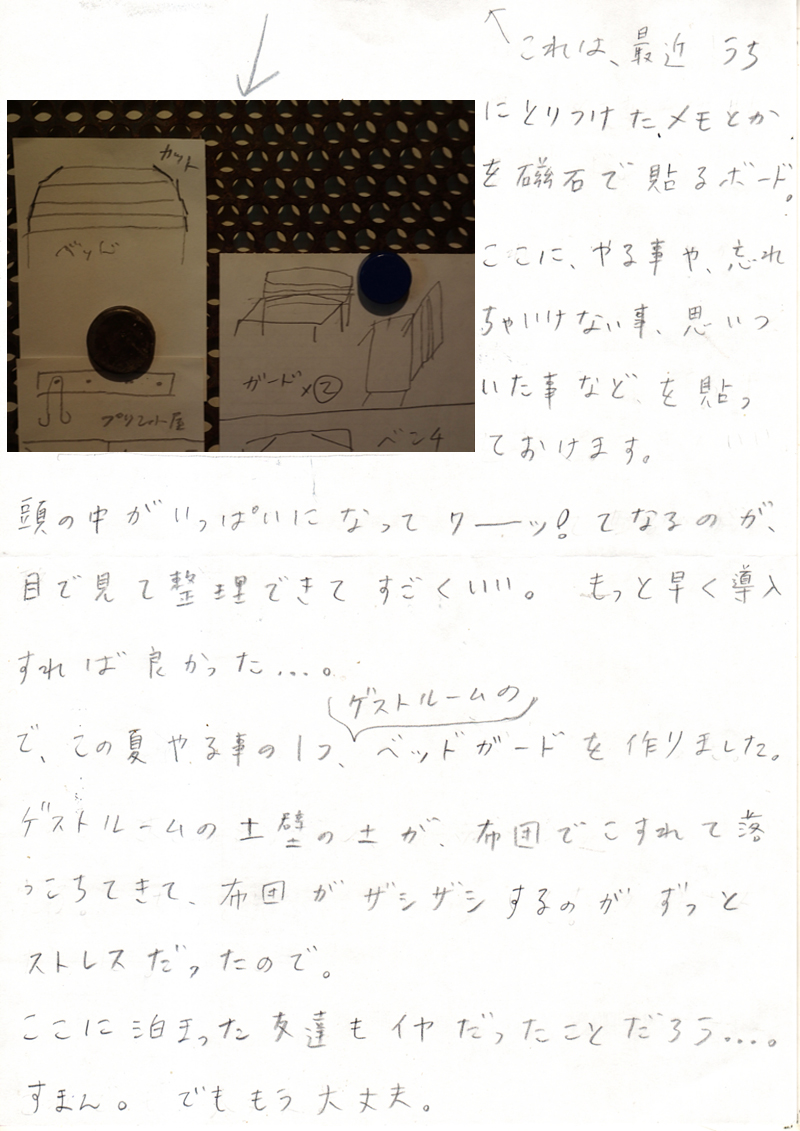 これは、最近 うち
にとりつけた、メモとか
を磁石で貼るボード。
ここに、やる事や、忘れ
ちゃいけない事、思いつ
いた事など、を貼っ
ておけます。
カット
ベッド
ガード×②
プリント屋
ベンチ
頭の中がいっぱいになってワーーッ!てなるのが、
目で見て整理できてすごくいい。 もっと早く導入
すれば良かった...。
ゲストルームの
で、この夏やる事の1つ、ベッドガードを作りました。
ゲストルームの土壁の土が、布団でこすれて落
っこちてきて、布団がザシザシするのがずっと
ストレスだったので。
ここに泊まった友達もイヤだったことだろう...。
すまん。 でももう大丈夫。